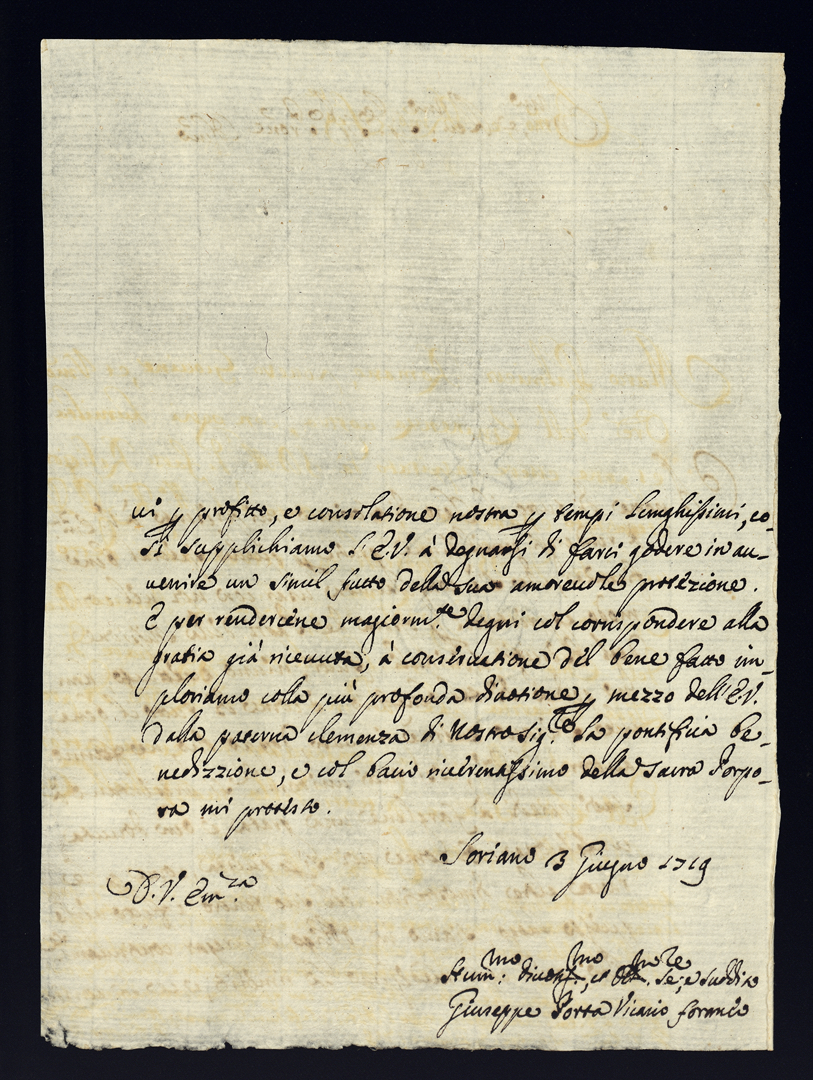 ui p profitto, e consolatione nostra p tempi lunghissimi, co-
si supplichiamo l'E.V. à degnarsi di farci godere in au-
uenire un simil fatto della sua amoreuole protezione.
E per rendercene magiorm.te degni col corrispondere alla
gratia già riceuuta, à conseruatione del bene fatto im-
ploriamo colla più profonda diuotione p mezzo dell'E.V.
dalla paterna clemenza di Nostro Sig.re la pontificia be-
nedizzione, e col bacio riuerentissimo della sacra Porpo-
ra mi protesto.
Soriano 3 Giugno 1719
D.V. Em.za
Hum.mo diuot.mo, et se: e suddito
Giuseppe Porta Vicario foraneo